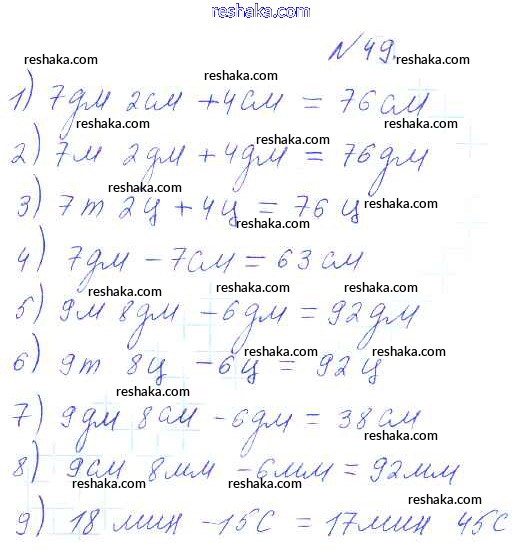 reshaka.com
№49.
reshaka.com reshaka.com
reshaka.com
1) 7дм 2см + 4см = 76см
reshaka.com
reshaka.com
2) 7м 2дм + 4дм = 76дм
reshaka.com
3) 7т 2ц + 4ц = 76 ц
reshaka.com
reshaka.com
4) 7дм - 7см = 63 см
reshaka.com
reshaka.com
5) 9м 8дм - 6дм = 92дм
reshaka.com
reshaka.com
6) 9т 8ц - 6ц = 92ц
reshaka.com
7) 9дм 8см - 6дм = 38см
reshaka.com
reshaka.com
8) 9см 8мм - 6мм = 92мм
reshaka.com
reshaka.com
9) 18 мин - 15с = 17мин 45с
reshaka.com